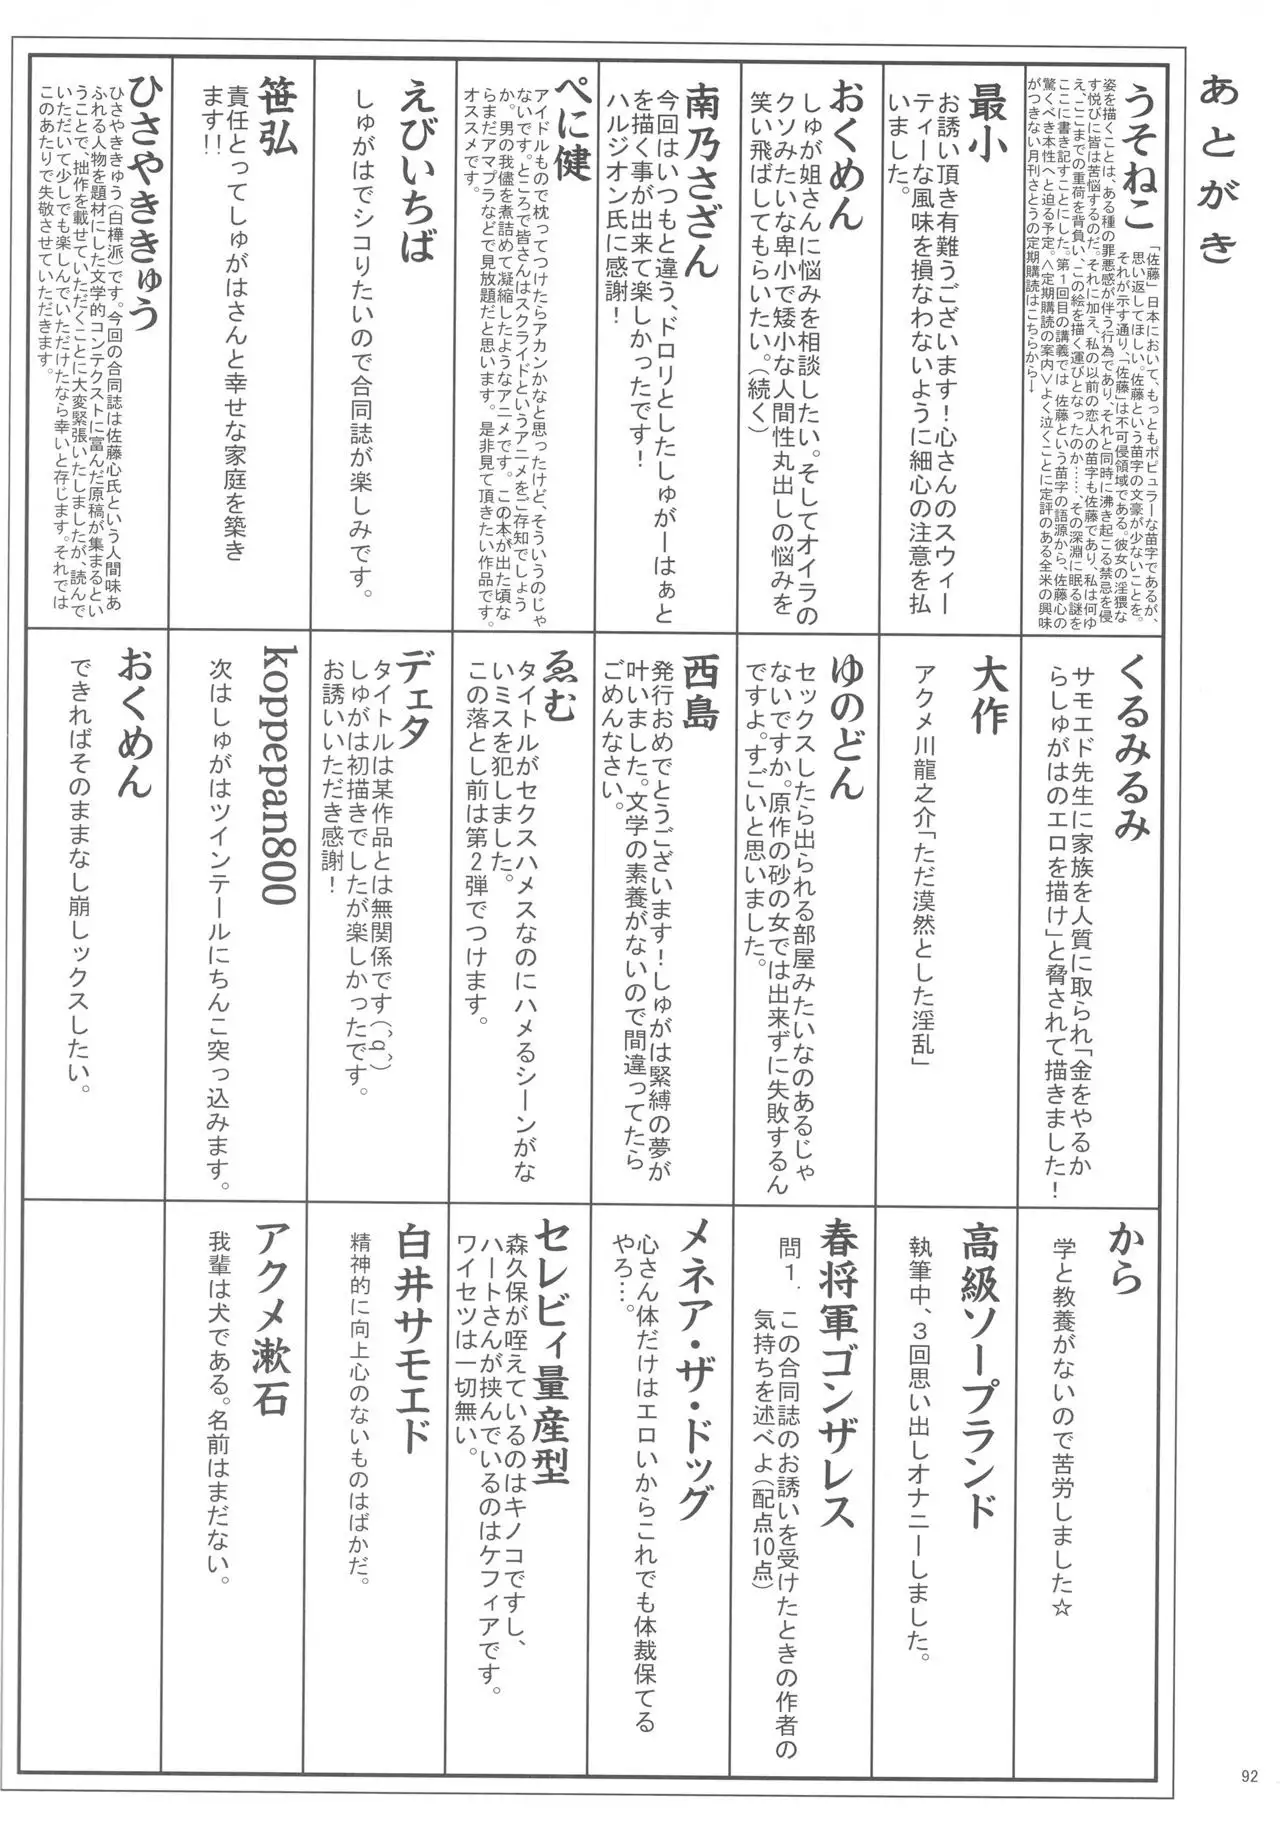 あとがき
うそねこ
「佐藤」日本において、もっともポピュラーな苗字であるが、
思い返してほしい。佐藤という苗字の文豪が少ないことを。
それが示す通り、「佐藤」は不可侵領域である。彼女の淫猥な
姿を描くことは、ある種の罪悪感が伴う行為であり、それと同時に沸き起こる禁忌を侵
す悦びに皆は苦悩するのだ。それに加え、私の以前の恋人の苗字も佐藤であり、私は何ゆ
え、ここまでの重荷を背負い、この絵を描く運びとなったのか……、その深淵に眠る謎を
ここに書き記すことにした。第1回目の講義では 佐藤という苗字の語源から、佐藤心の
驚くべき本性へと迫る予定。＜定期購読の案内＞よく泣くことに定評のある全米の興味
がつきない月刊さとうの定期購読はこちらから→
最小
お誘い頂き有難うございます！心さんのスウィー
ティーな風味を損なわないように細心の注意を払
いました。
おくめん
しゅが姐さんに悩みを相談したい。そしてオイラの
クソみたいな卑小で矮小な人間性丸出しの悩みを
笑い飛ばしてもらいたい。（続く）
南乃さざん
今回はいつもと違う、ドロリとしたしゅがーはぁと
を描く事が出来て楽しかったです！
ハルジオン氏に感謝！
べに健
アイドルもので枕ってつけたらアカンかなと思ったけど、そういうのじゃ
ないです。ところで皆さんはスクライドというアニメをご存知でしょう
か。男の我儘を煮詰めて凝縮したようなアニメです。この本が出た頃な
らまだアマプラなどで見放題だと思います。是非見て頂きたい作品です。
オススメです。
えびいちば
しゅがはでシコりたいので合同誌が楽しみです。
笹弘
責任とってしゅがはさんと幸せな家庭を築き
ます！！
ひさやききゅう
ひさやききゅう（白樺派）です。今回の合同誌は佐藤心氏という人間味あ
ふれる人物を題材にした文学的コンテクストに富んだ原稿が集まるとい
うことで、拙作を載せていただくことに大変緊張いたしましたが、読んで
いただいて少しでも楽しんでいただけたなら幸いと存じます。それでは
このあたりで失敬させていただきます。
くるみるみ
サモエド先生に家族を人質に取られ「金をやるか
らしゅがはのエロを描け」と脅されて描きました！
大作
アクメ川龍之介「ただ漠然とした淫乱」
ゆのどん
セックスしたら出られる部屋みたいなのあるじゃ
ないですか。原作の砂の女では出来ずに失敗するん
ですよ。すごいと思いました。
西島
発行おめでとうございます！しゅがは緊縛の夢が
叶いました。文学の素養がないので間違ってたら
ごめんなさい。
ゑむ
タイトルがセクスハメスなのにハメるシーンがな
いミスを犯しました。
この落とし前は第2弾でつけます。
デェタ
タイトルは某作品とは無関係です(´q`)
しゅがは初描きでしたが楽しかったです。
お誘いいただき感謝！
koppepan800
次はしゅがはツインテールにちんこ突っ込みます。
おくめん
できればそのままなし崩しックスしたい。
から
学と教養がないので苦労しました☆
高級ソープランド
執筆中、3回思い出しオナニーしました。
春将軍ゴンザレス
問1． この合同誌のお誘いを受けたときの作者の
気持ちを述べよ（配点10点）
メネア・ザ・ドッグ
心さん体だけはエロいからこれでも体裁保てる
やろ…。
セレビィ量産型
森久保が咥えているのはキノコですし、
ハートさんが挟んでいるのはケフィアです。
ワイセツは一切無い。
白井サモエド
精神的に向上心のないものはばかだ。
アクメ漱石
我輩は犬である。名前はまだない。
92